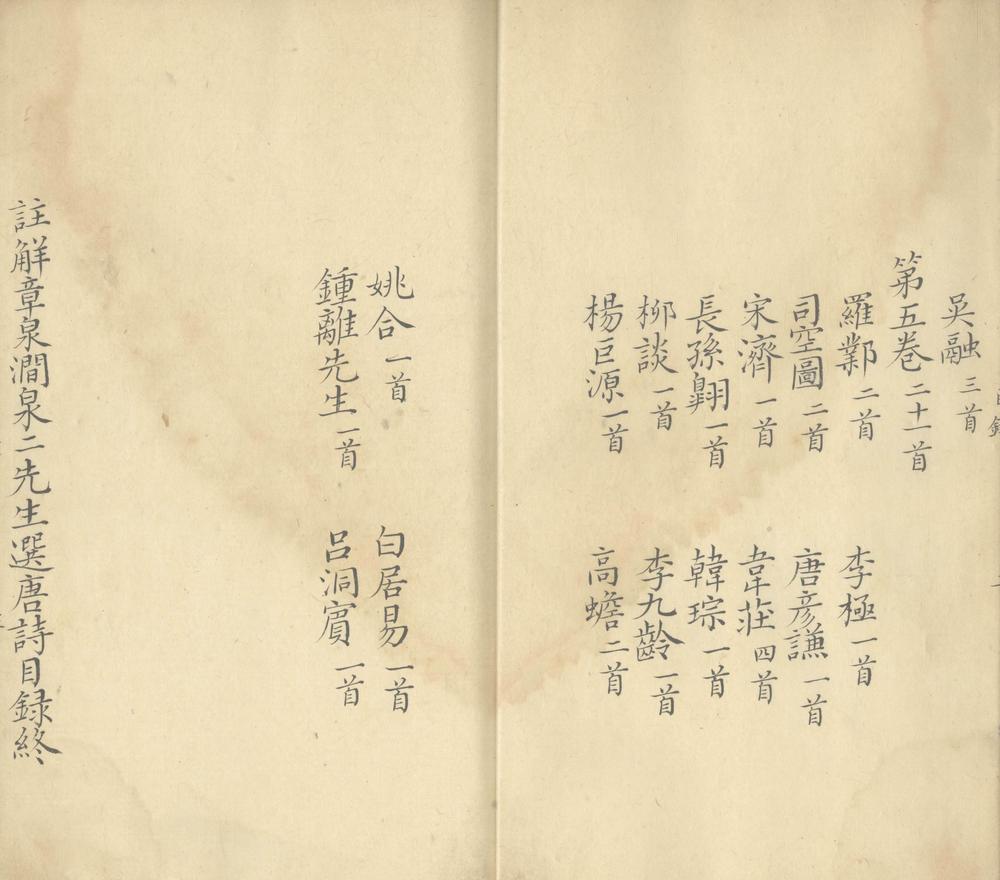 吳融三首
第五卷二十一首
羅鄴二首 李極一首
司空圖二首 唐彥謙一首
宋濟一首 韋莊四首
長孫翺一首 韓琮一首
柳談一首 李九齡一首
楊巨源一首 高蟾二首
姚合一首 白居易一首
鍾離先生一首 呂洞賓一首
註解章泉澗泉二先生選唐詩目録終